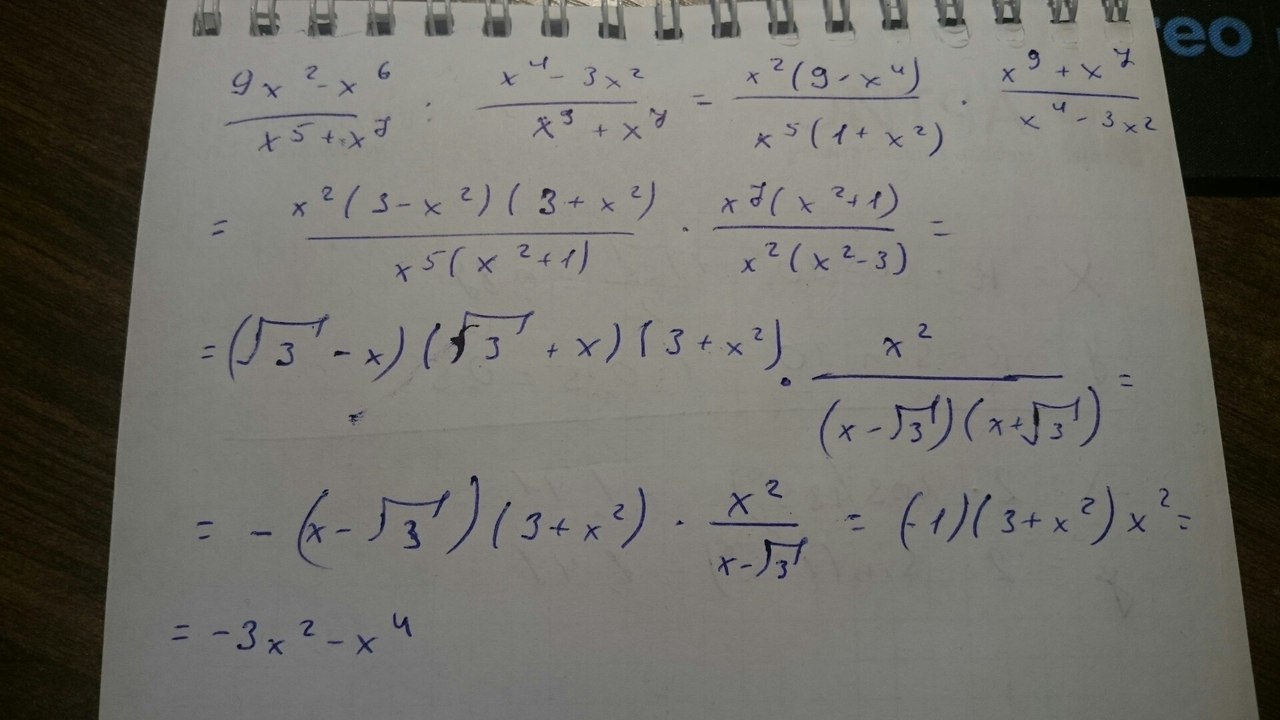 reo
(9x² - x⁶)/(x⁵ + x⁷) : (x⁴ - 3x²)/(x⁹ + x⁷) = (x²(9 - x⁴))/(x⁵(1 + x²)) · (x⁹ + x⁷)/(x⁴ - 3x²)
= (x²(3 - x²)(3 + x²))/(x⁵(x² + 1)) · (x⁷(x² + 1))/(x²(x² - 3)) =
= (√3 - x)(√3 + x)(3 + x²) · x²/((x - √3)(x + √3)) =
= - (x - √3)(3 + x²) · x²/(x - √3) = (-1)(3 + x²)x² =
= -3x² - x⁴